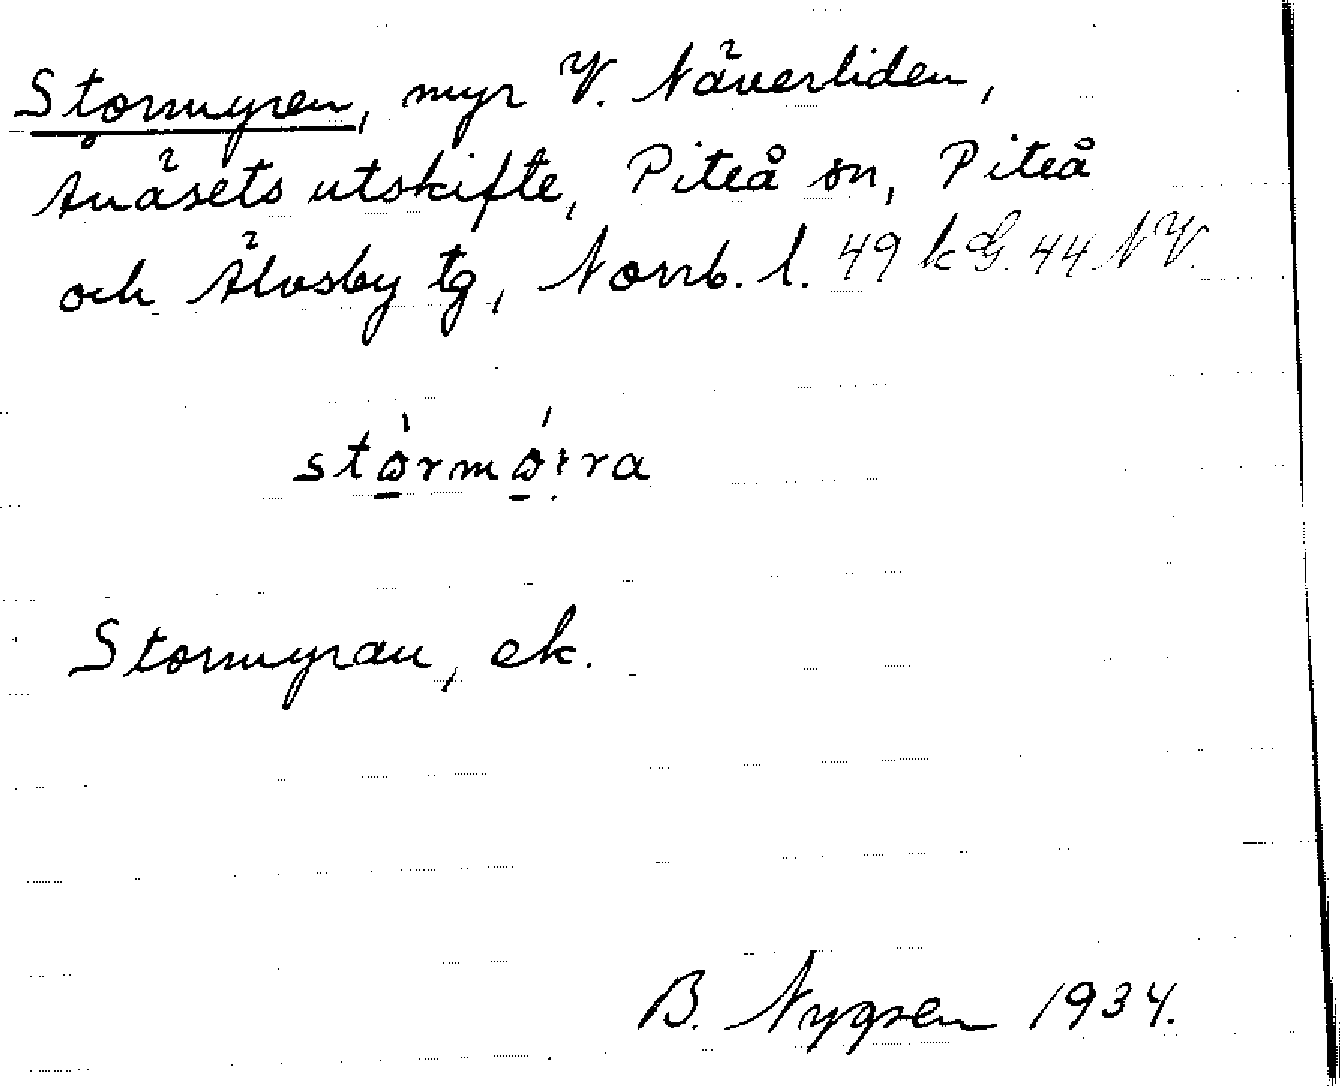 Stormyren, myr V. Näverliden,
Ånäsets utskifte, Piteå sn, Piteå
och Älvsby tg, Norrb. l. 49 k G. 44 NV.
Stormyran, ek.
B. Nygren 1934.